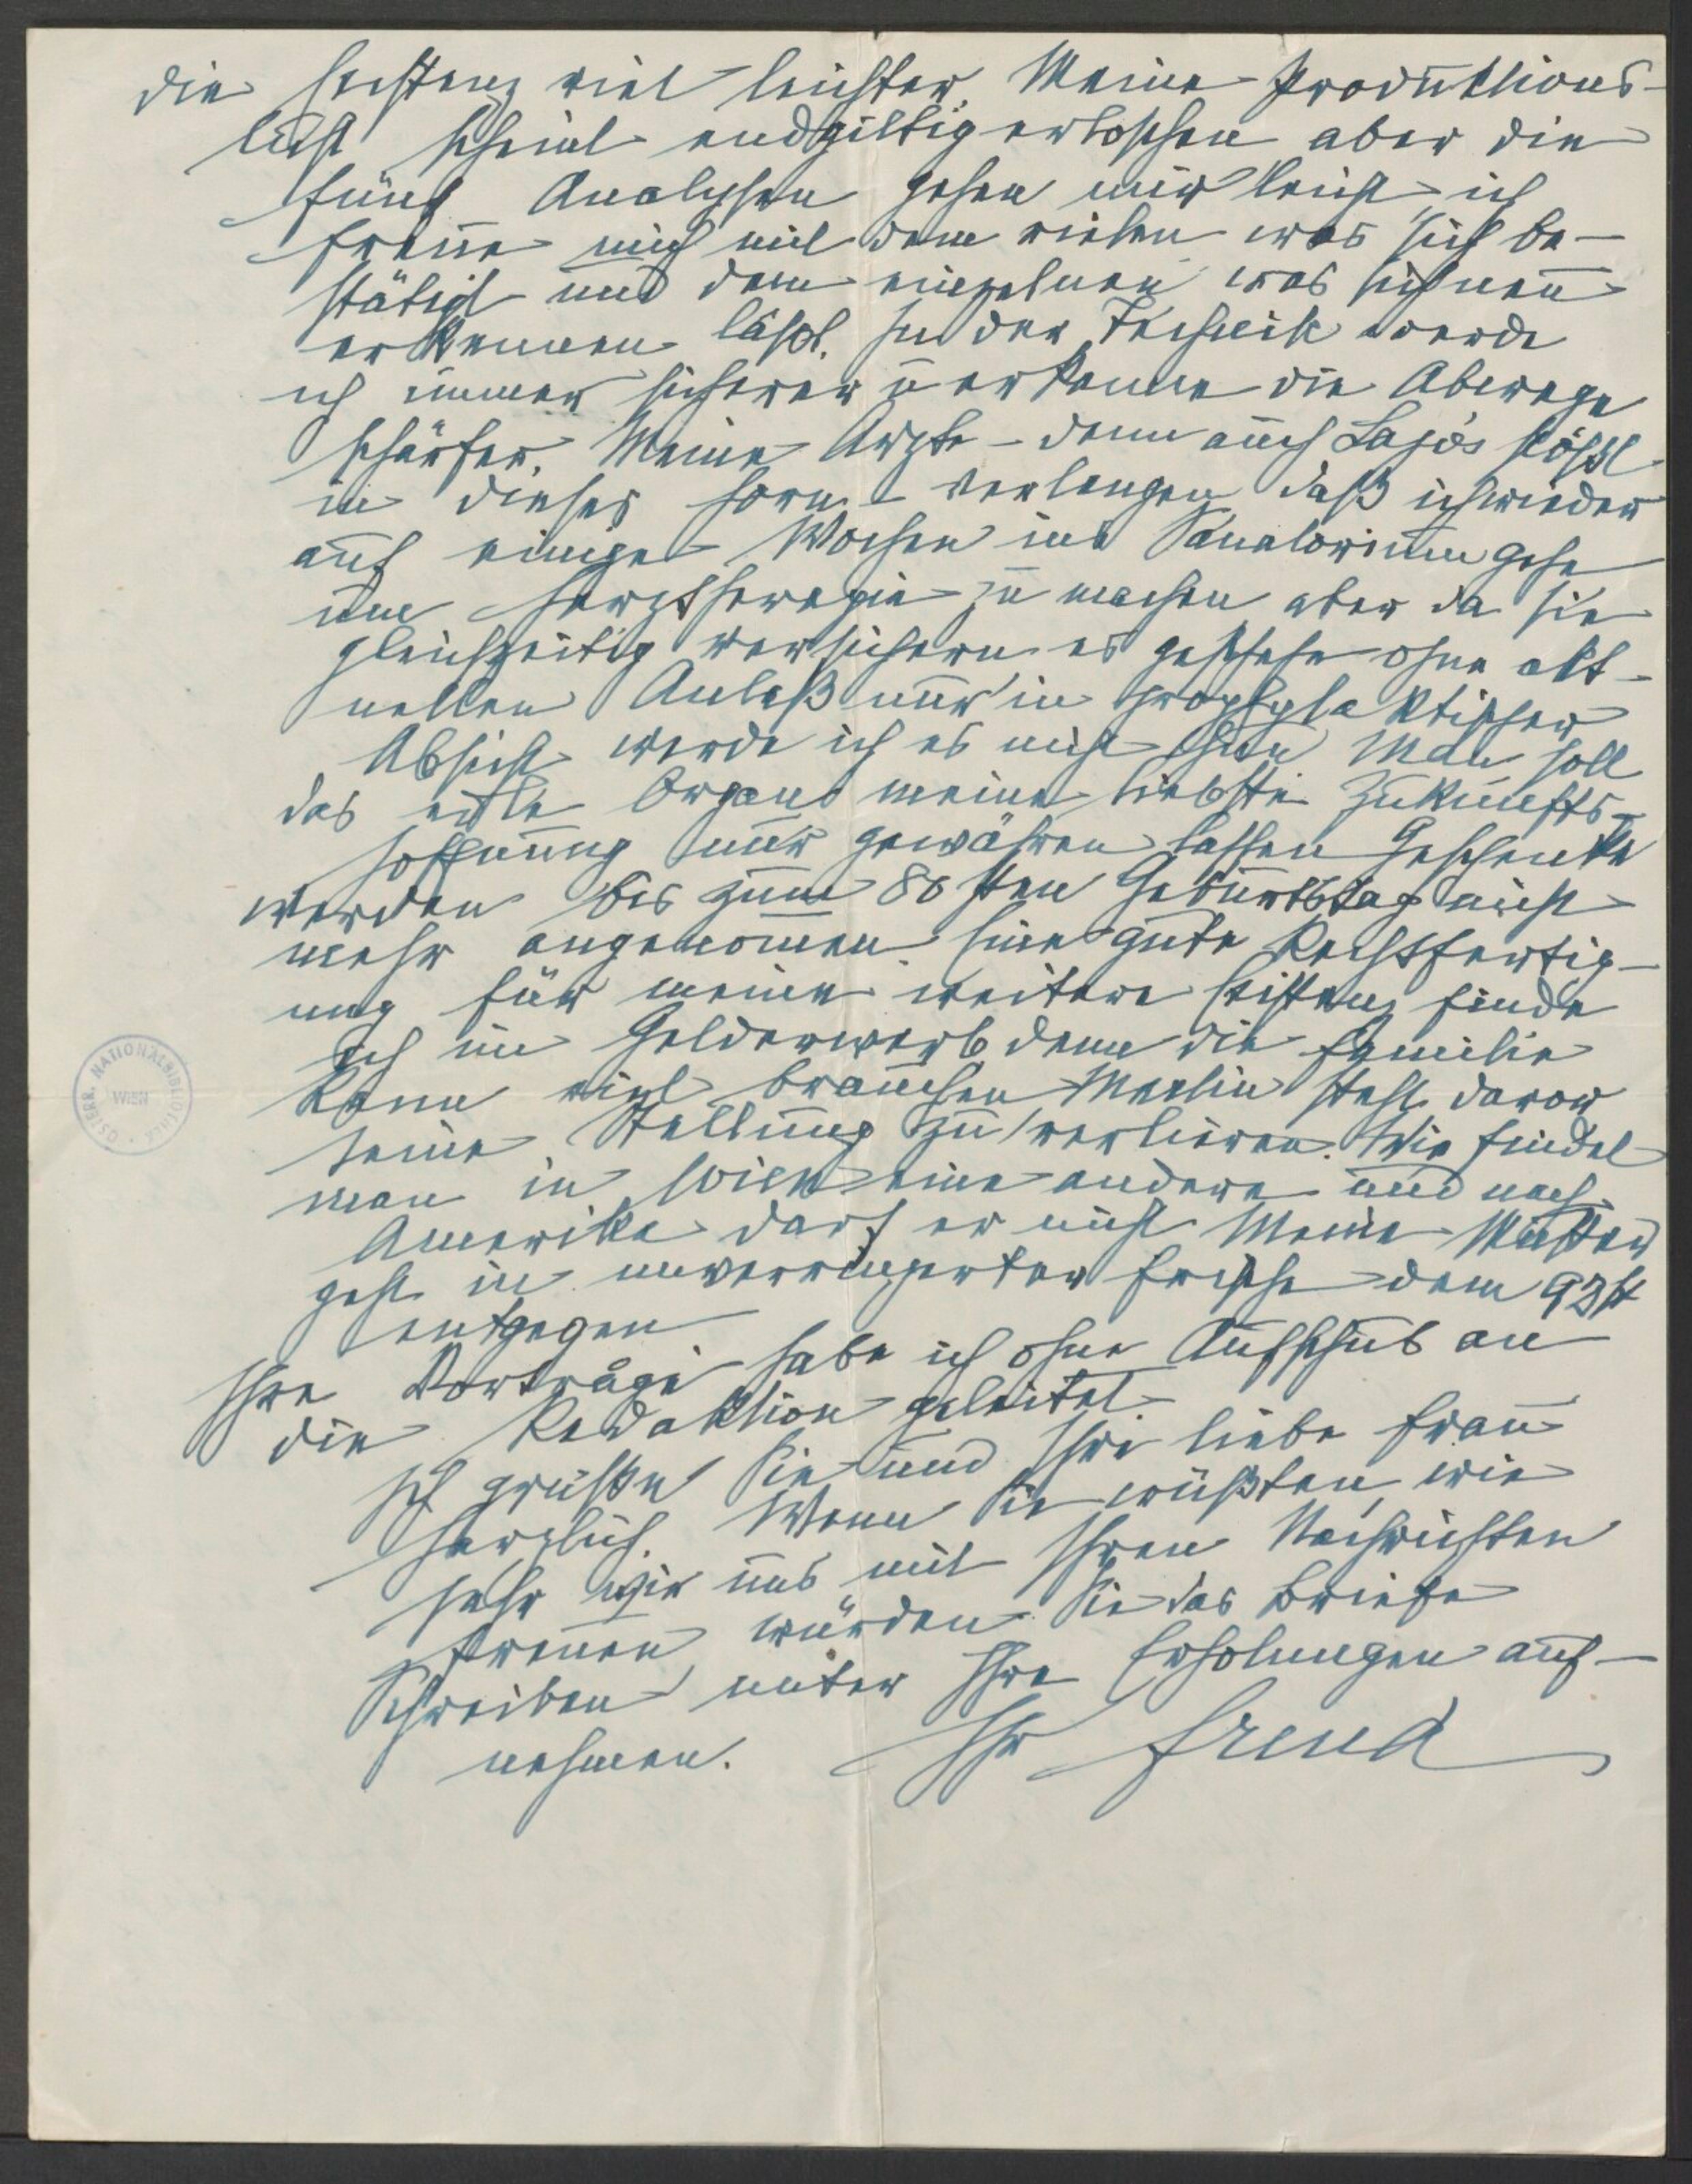 die Existenz viel leichter. Meine Produktions-
lust scheint endgiltig erloschen aber die
fünf Analysen gehen mir leicht, ich
freue mich mit dem vielen was sich be-
stätigt und dem einzelnen was sich neu
erkennen läßt. In der Technik werde
ich immer sicherer u erkenne die Abwege
schärfer. Meine Ärzte – denn auch Lajos stößt
in dieses Horn – verlangen daß ich wieder
auf einige Wochen ins Sanatorium gehe
um Herztherapie zu machen aber da sie
gleichzeitig versichern es geschehe ohne akt-
uellen Anlaß nur in prophylaktischer
Absicht werde ich es nicht thun. Man soll
das edle Organ meine liebste Zukunfts-
hoffnung nur gewähren lassen. Geschenke
werden bis zum 80sten Geburtstag nicht
mehr angenommen. Eine gute Rechtfertig-
ung für meine weitere Existenz finde
ich im Gelderwerb denn die Familie
kann viel brauchen. Martin steht davor
seine Stellung zu verlieren. Wie findet
man in Wien eine andere und nach
Amerika darf er nicht. Meine Mutter
geht in unverringerter Frische dem 93st
entgegen
Ihre Vorträge habe ich ohne Aufschub an
die Redaktion geleitet.
Ich grüße Sie und Ihre liebe Frau
herzlich. Wenn Sie wüßten, wie
sehr wir uns mit Ihren Nachrichten
freuen würden Sie das Briefe
Schreiben unter Ihre Erholungen auf-
nehmen.
Ihr Freud
ÖSTERR. NATIONALBIBLIOTHEK
WIEN